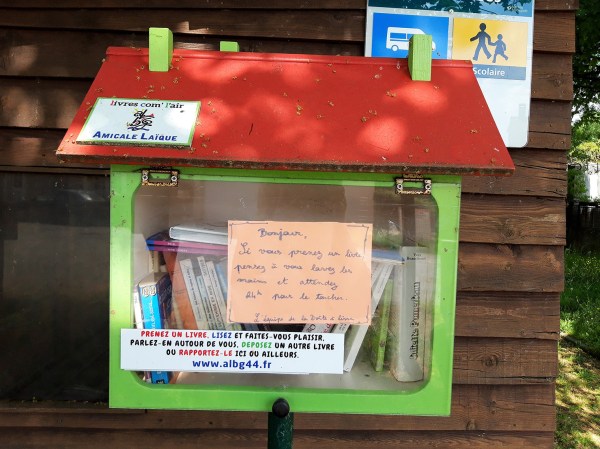 Scolaire
Livres com' l'air
AMICALE LAÏQUE
Bonjour,
Si vous prenez un livre
pensez à vous laver les
mains et attendez
24h pour le toucher.
L'équipe de la Boîte à livre
PRENEZ UN LIVRE, LISEZ ET FAITES-VOUS PLAISIR,
PARLEZ-EN AUTOUR DE VOUS, DEPOSEZ UN AUTRE LIVRE
OU RAPPORTEZ-LE ICI OU AILLEURS.
www.albg44.fr